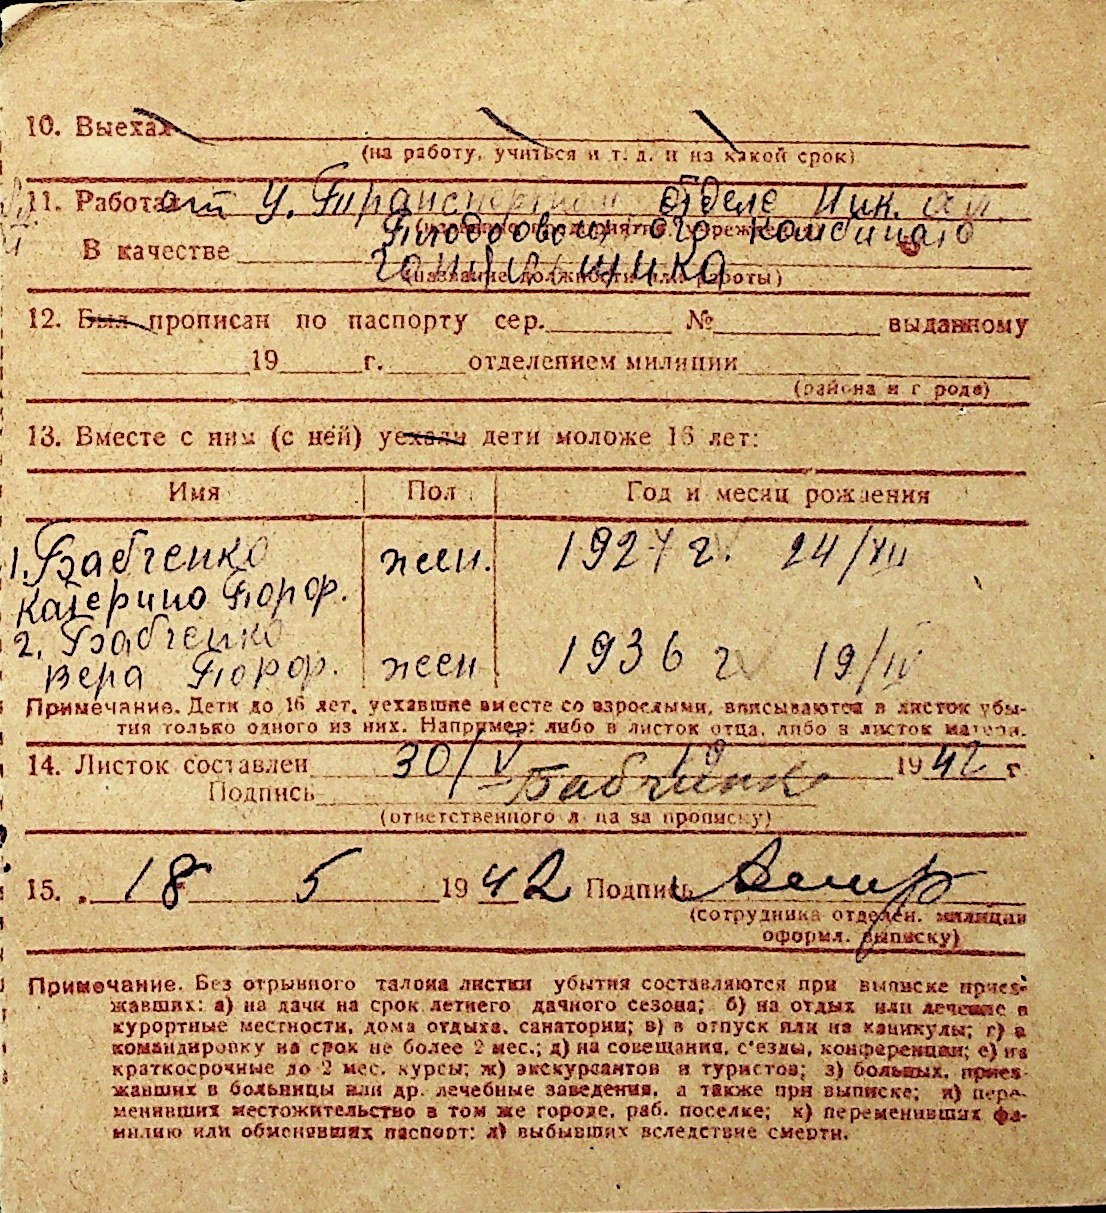 10. Выехал
(на работу, учиться и т. д. и на какой срок)
11. Работает у. Транспортном отделе Ник.
Плодоовощ. комбината
В качестве
(название должности или работы)
12. Был прописан по паспорту сер. № выданному
19 г. отделением милиции
(района и г рода)
13. Вместе с ним (с ней) уехали дети моложе 16 лет:
Имя Пол Год и месяц рождения
1. Бабченко жен. 1927 г. 24/XII
Катерино Порф.
2. Бабченко
Вера Порф. жен 1936 г 19/IV
Примечание. Дети до 16 лет, уехавшие вместе со взрослыми, вписываются в листок убы-
тия только одного из них. Например: либо в листок отца, либо в листок матери.
14. Листок составлен 30/V 1942 г
Подпись Бабченко
(ответственного л ца за прописку)
15. 18 5 1942 Подпись
(сотрудника отделен. милиции
оформл. выписку)
Примечание. Без отрывного талона листки убытия составляются при выписке приез-
жавших: а) на дачи на срок летнего дачного сезона; б) на отдых или лечение в
курортные местности, дома отдыха, санатории; в) в отпуск или на каникулы; г) в
командировку на срок не более 2 мес.; д) на совещания, с'езды, конференции; е) на
краткосрочные до 2 мес. курсы; ж) экскурсантов и туристов; з) больных, приез-
жавших в больницы или др. лечебные заведения, а также при выписке; и) пере-
менивших местожительство в том же городе, раб. поселке; к) переменивших фа-
милию или обменявших паспорт; л) выбывших вследствие смерти.